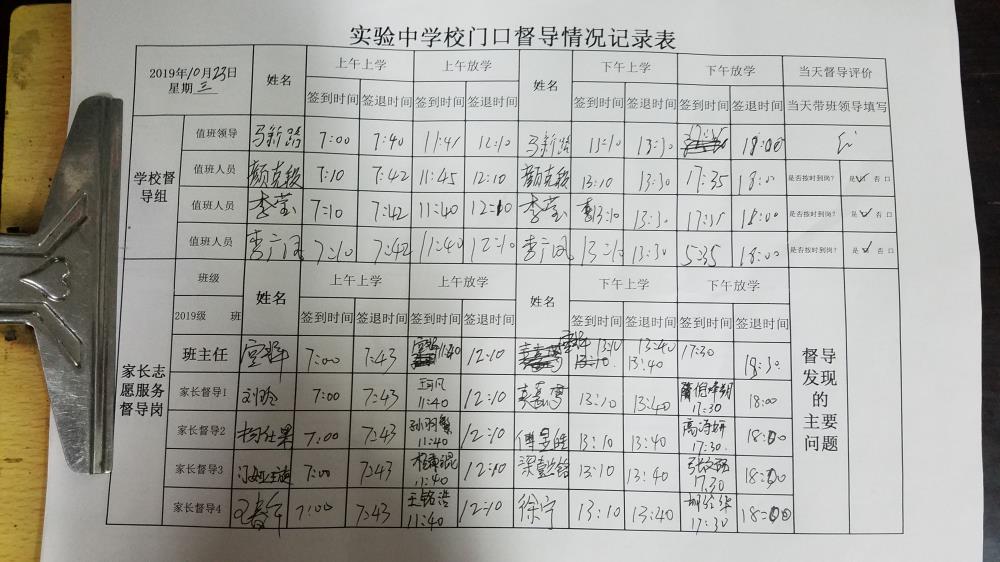 实验中学校门口督导情况记录表
2019年10月23日
星期三
姓名
上午上学
上午放学
姓名
下午上学
下午放学
当天督导评价
签到时间 签退时间 签到时间 签退时间 签到时间 签退时间 签到时间 签退时间 当天带班领导填写
学校督导组
值班领导 马新路 7:00 7:40 11:45 12:10 马新路 13:10 13:30 18:00
值班人员 颜克毅 7:10 7:42 11:45 12:10 颜克毅 13:10 13:30 17:35 18:00 是否按时到岗? 是 否
值班人员 李莹 7:10 7:42 11:40 12:10 李莹 13:10 13:30 18:00 是否按时到岗? 是 否
值班人员 7:10 7:42 11:40 12:10 13:10 13:30 5:35 18:00 是否按时到岗? 是 否
家长志愿服务督导岗
班级
2019级 班
姓名
上午上学
上午放学
姓名
下午上学
下午放学
签到时间 签退时间 签到时间 签退时间 签到时间 签退时间 签到时间 签退时间
班主任 7:00 7:43 11:40 12:10 13:10 13:40 17:30 18:30
家长督导1 刘玲 7:00 7:43 11:40 12:10 13:10 13:40 17:30 18:00
家长督导2 7:00 7:43 11:40 12:10 13:10 13:40 17:30 18:00
家长督导3 7:00 7:43 11:40 12:10 13:10 13:40 17:30 18:00
家长督导4 7:00 7:43 王铭浩 11:40 12:10 徐宁 13:10 13:40 17:30 18:00
督导
发现
的
主要
问题